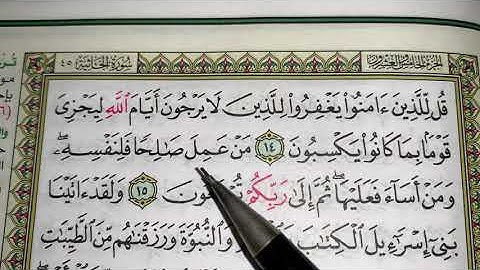 سُورَةُ الْجَاثِيَةِ ٤٥
قُل لِّلَّذِينَ ءَامَنُوا۟ يَغْفِرُوا۟ لِلَّذِينَ لَا يَرْجُونَ أَيَّامَ اللَّهِ لِيَجْزِىَ
قَوْمًۢا بِمَا كَانُوا۟ يَكْسِبُونَ ١٤ مَنْ عَمِلَ صَٰلِحًا فَلِنَفْسِهِۦ ۖ
وَمَنْ أَسَآءَ فَعَلَيْهَا ۖ ثُمَّ إِلَىٰ رَبِّكُمْ ١٥ وَلَقَدْ ءَاتَيْنَا
بَنِىٓ إِسْرَٰٓءِيلَ الْكِتَٰبَ وَالنُّبُوَّةَ وَرَزَقْنَٰهُم مِّنَ الطَّيِّبَٰتِ